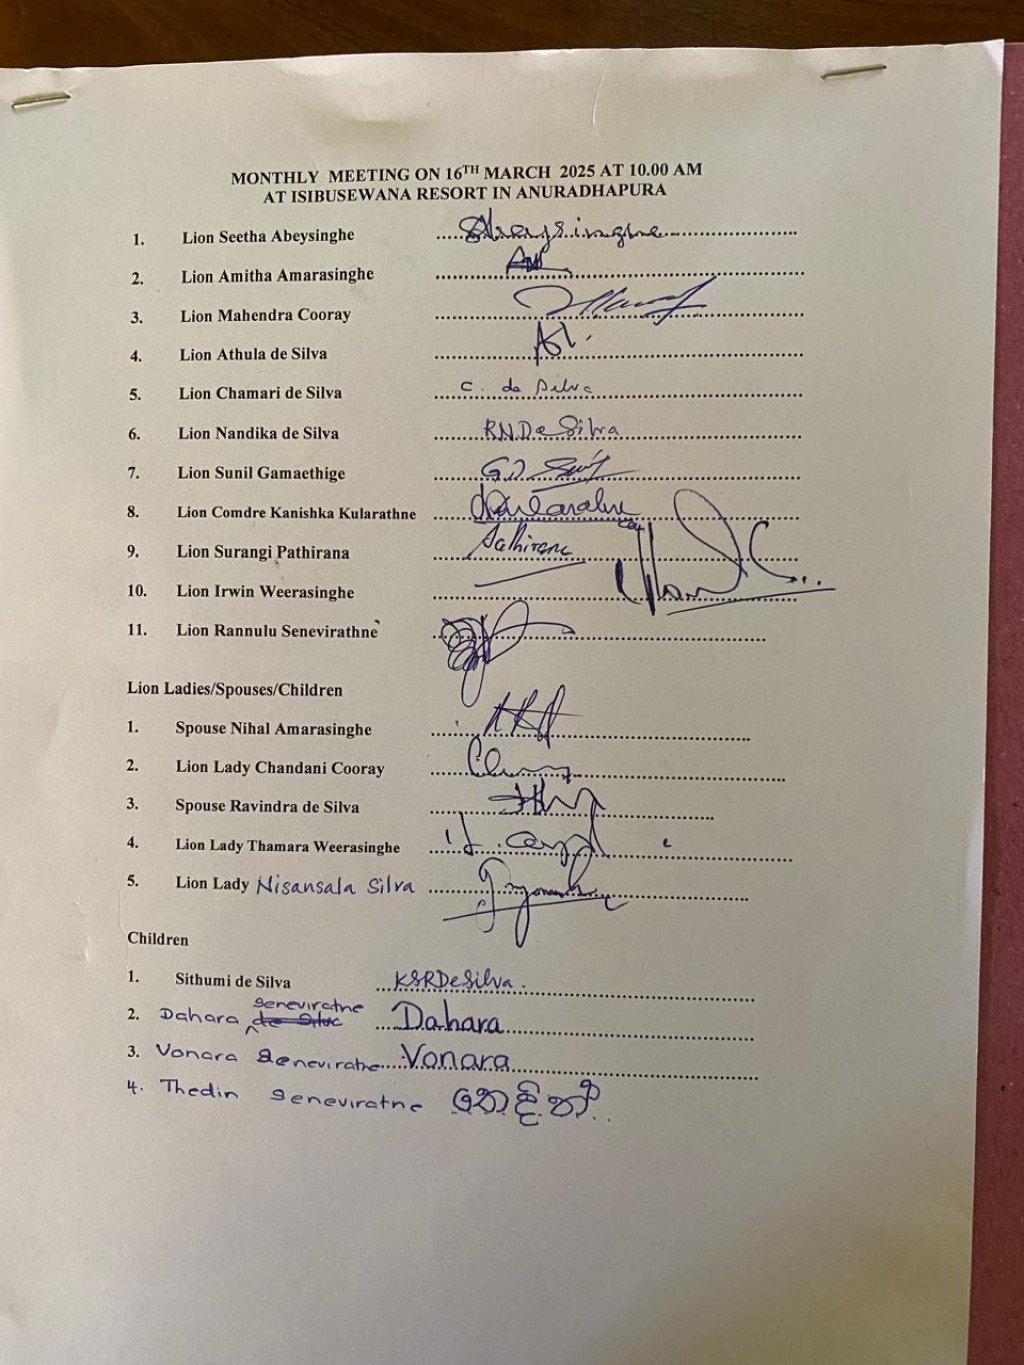 MONTHLY MEETING ON 16TH MARCH 2025 AT 10.00 AM
AT ISIBUSEWANA RESORT IN ANURADHAPURA
1. Lion Seetha Abeysinghe ..... Abeysinghe
2. Lion Amitha Amarasinghe
3. Lion Mahendra Cooray
4. Lion Athula de Silva
5. Lion Chamari de Silva ..... C. de Silva
6. Lion Nandika de Silva ..... R.N.De Silva
7. Lion Sunil Gamaethige
8. Lion Comdre Kanishka Kularathne
9. Lion Surangi Pathirana ..... Pathirana
10. Lion Irwin Weerasinghe
11. Lion Rannulu Senevirathne
Lion Ladies/Spouses/Children
1. Spouse Nihal Amarasinghe
2. Lion Lady Chandani Cooray
3. Spouse Ravindra de Silva
4. Lion Lady Thamara Weerasinghe
5. Lion Lady Nisansala Silva
Children
1. Sithumi de Silva ..... KSRDeSilva.
2. Dahara Seneviratne ..... Dahara
3. Vonara Seneviratne ..... Vonara
4. Thedin Seneviratne තෙදින්